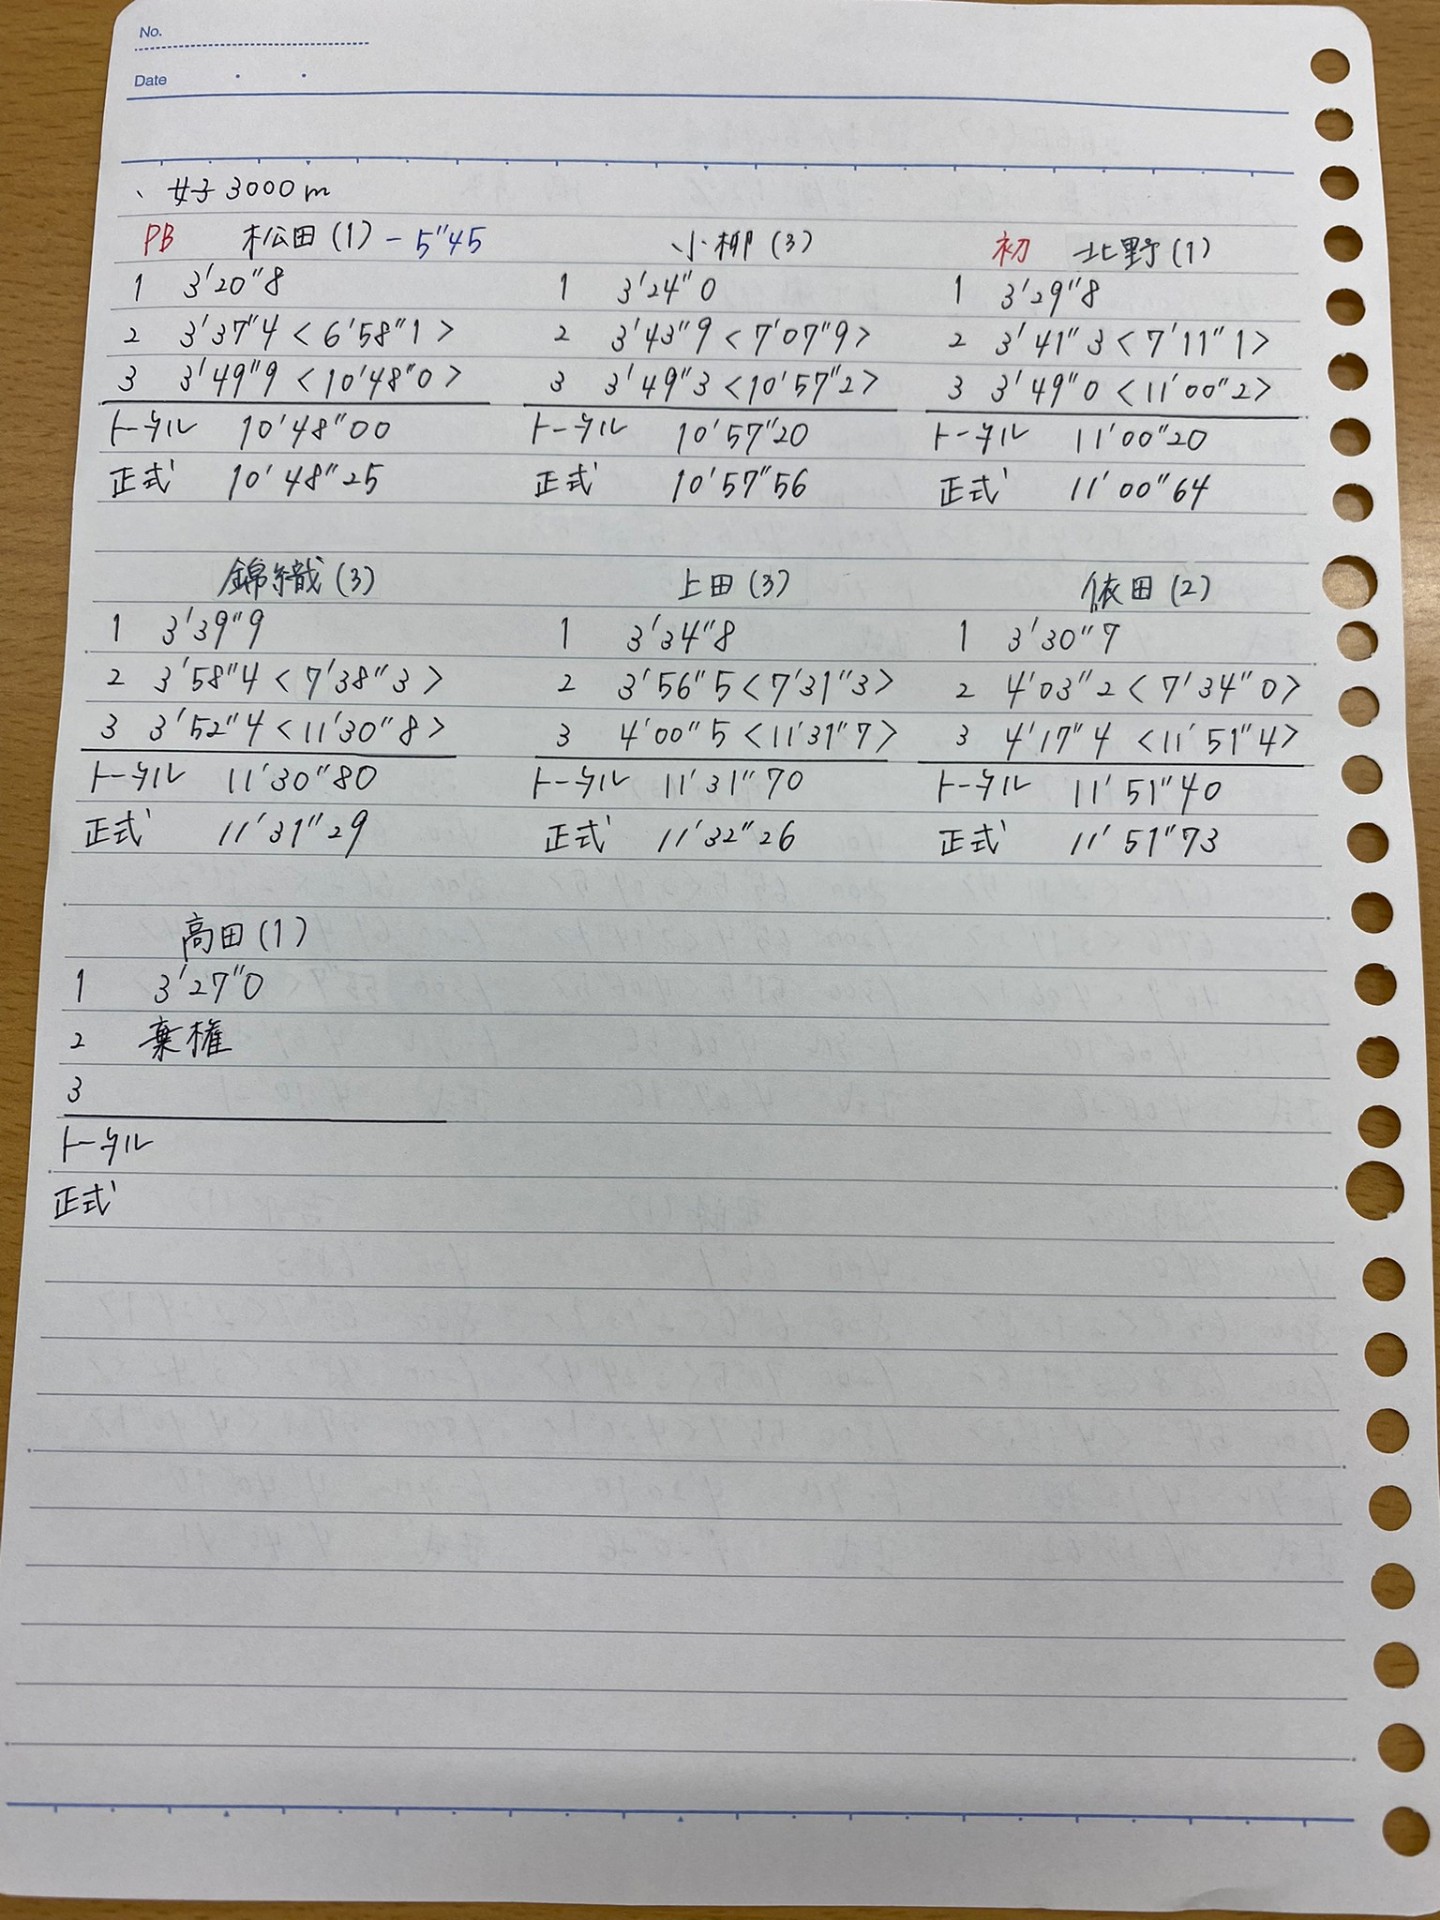 No.
Date
、女子3000m
PB 松田(1) -5"45 小柳(3) 初 北野(1)
1 3'20"8 1 3'24"0 1 3'29"8
2 3'37"4 <6'58"1> 2 3'43"9 <7'07"9> 2 3'41"3 <7'11"1>
3 3'49"9 <10'48"0> 3 3'49"3 <10'57"2> 3 3'49"0 <11'00"2>
トータル 10'48"00 トータル 10'57"20 トータル 11'00"20
正式 10'48"25 正式 10'57"56 正式 11'00"64
錦織(3) 上田(3) 依田(2)
1 3'39"9 1 3'34"8 1 3'30"7
2 3'58"4 <7'38"3> 2 3'56"5 <7'31"3> 2 4'03"2 <7'34"0>
3 3'52"4 <11'30"8> 3 4'00"5 <11'31"7> 3 4'17"4 <11'51"4>
トータル 11'30"80 トータル 11'31"70 トータル 11'51"40
正式 11'31"29 正式 11'32"26 正式 11'51"73
高田(1)
1 3'27"0
2 棄権
3
トータル
正式